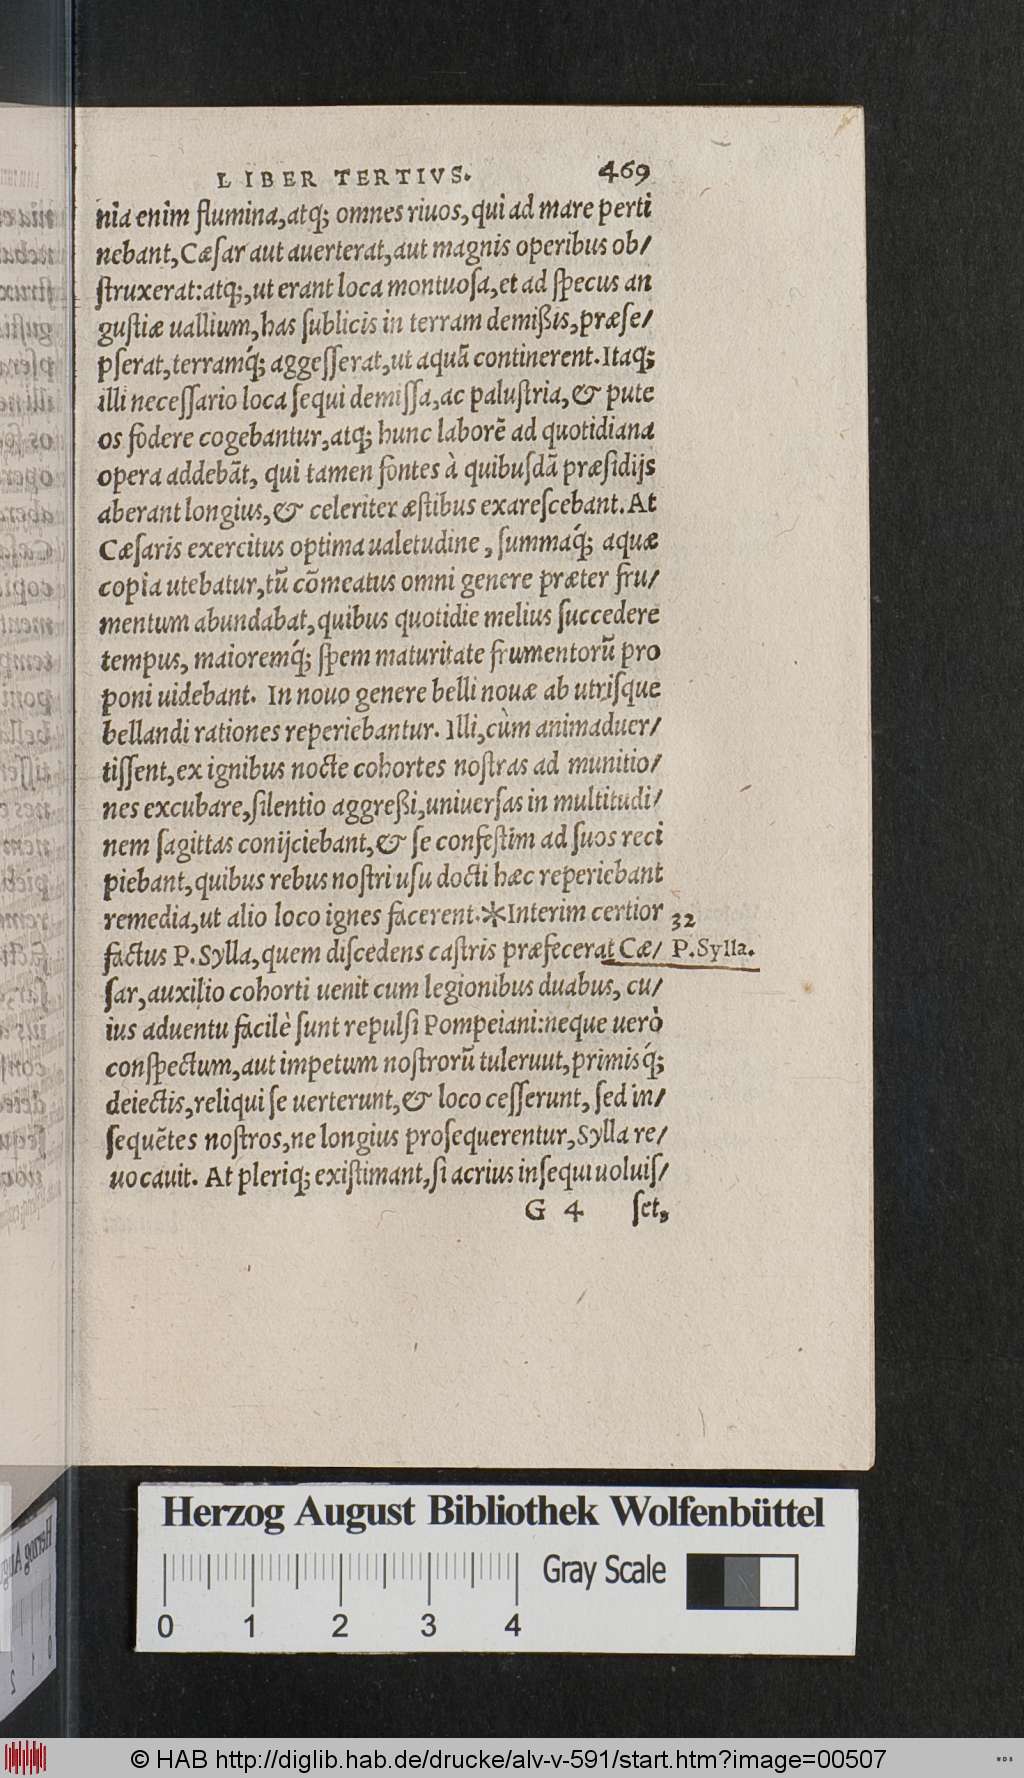 LIBER TERTIVS. 469
nia enim flumina, atq; omnes riuos, qui ad mare perti
nebant, Cæſar aut auerterat, aut magnis operibus ob/
ſtruxerat: atq;, ut erant loca montuoſa, et ad ſpecus an
guſtiæ uallium, has ſublicis in terram demißis, præſe/
pſerat, terramq́; aggeſſerat, ut aquā continerent. Itaq;
illi neceſſario loca ſequi demiſſa, ac paluſtria, & pute
os fodere cogebantur, atq; hunc laborē ad quotidiana
opera addebāt, qui tamen fontes à quibuſdā præſidijs
aberant longius, & celeriter æſtibus exareſcebant. At
Cæſaris exercitus optima ualetudine, ſummaq́; aquæ
copia utebatur, tū cōmeatus omni genere præter fru/
mentum abundabat, quibus quotidie melius ſuccedere
tempus, maioremq́; ſpem maturitate frumentorū pro
poni uidebant. In nouo genere belli nouæ ab utriſque
bellandi rationes reperiebantur. Illi, cùm animaduer/
tiſſent, ex ignibus nocte cohortes noſtras ad munitio/
nes excubare, ſilentio aggreßi, uniuerſas in multitudi/
nem ſagittas conijciebant, & ſe confeſtim ad ſuos reci
piebant, quibus rebus noſtri uſu docti hæc reperiebant
remedia, ut alio loco ignes facerent.*Interim certior 32
factus P. Sylla, quem diſcedens caſtris præfecerat Cæ/ P. Sylla.
ſar, auxilio cohorti uenit cum legionibus duabus, cu/
ius aduentu facilè ſunt repulſi Pompeiani: neque uerò
conſpectum, aut impetum noſtrorū tuleruut, primisq́;
deiectis, reliqui ſe uerterunt, & loco ceſſerunt, ſed in/
ſequētes noſtros, ne longius proſequerentur, Sylla re/
uocauit. At pleriq; exiſtimant, ſi acrius inſequi uoluiſ/
G 4 ſet,
Herzog August Bibliothek Wolfenbüttel
Gray Scale
0 1 2 3 4
© HAB http://diglib.hab.de/drucke/alv-v-591/start.htm?image=00507